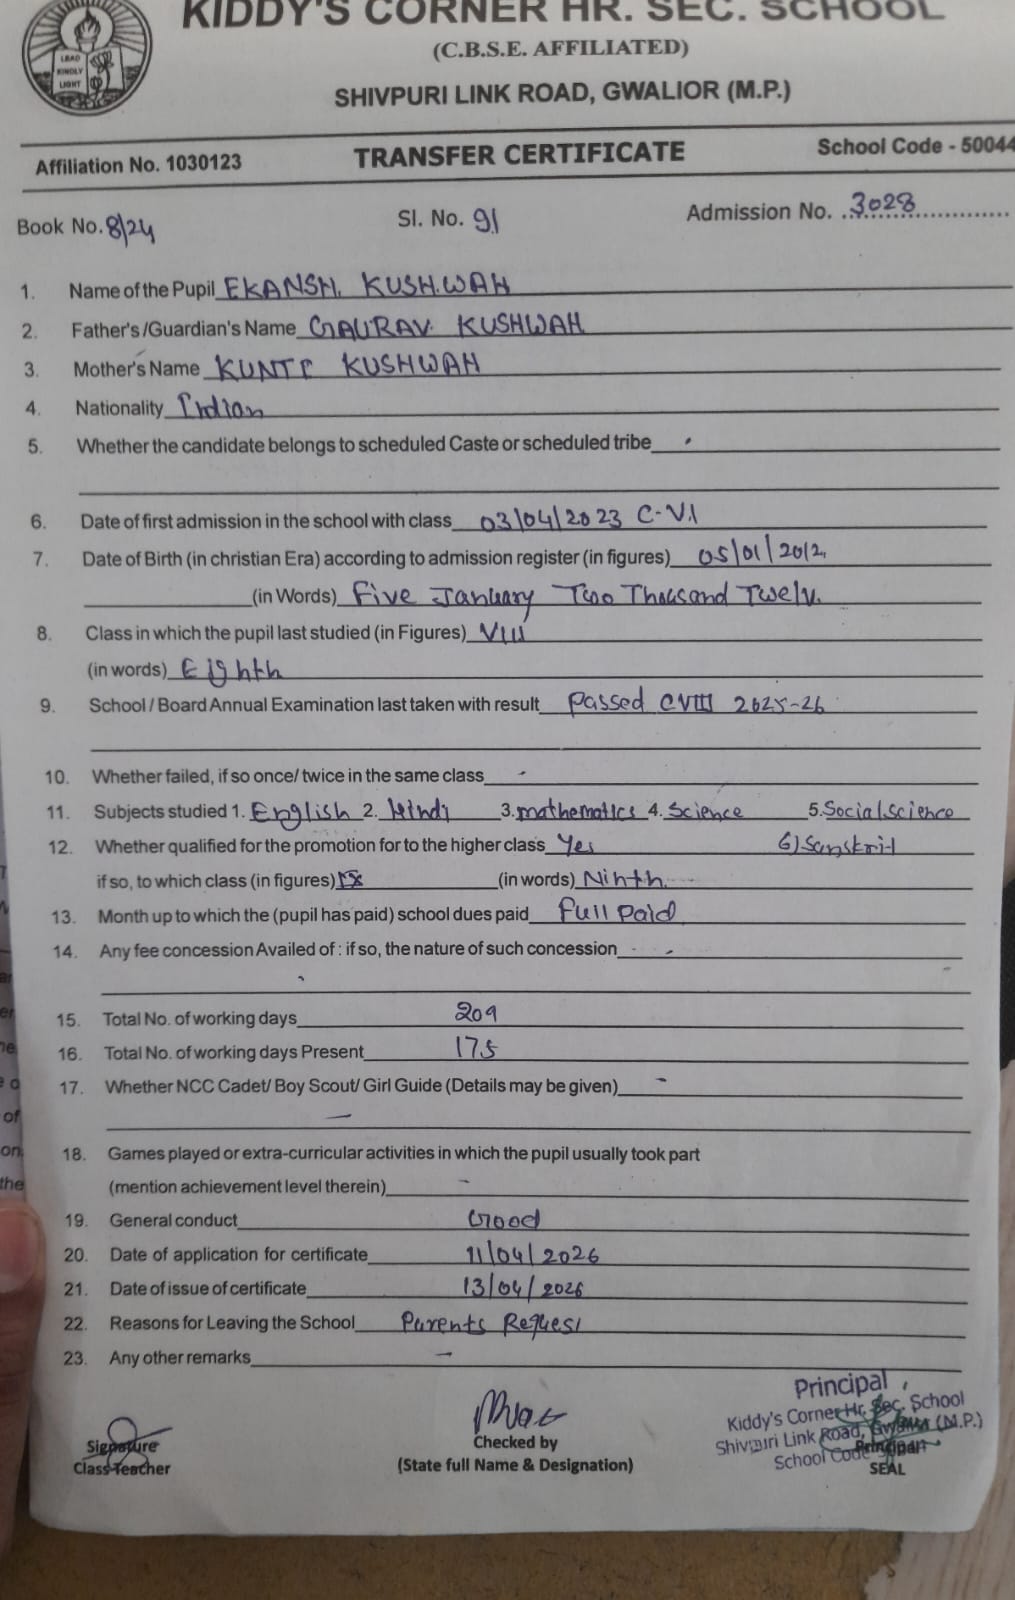 KIDDY'S CORNER HR. SEC. SCHOOL
LEAD KINDLY LIGHT
(C.B.S.E. AFFILIATED)
SHIVPURI LINK ROAD, GWALIOR (M.P.)
Affiliation No. 1030123 TRANSFER CERTIFICATE School Code - 50044
Book No. 8/24 Sl. No. 91 Admission No. 3028
1. Name of the Pupil EKANSH KUSHWAH
2. Father's/Guardian's Name GAURAV KUSHWAH
3. Mother's Name KUNTI KUSHWAH
4. Nationality Indian
5. Whether the candidate belongs to scheduled Caste or scheduled tribe -
6. Date of first admission in the school with class 03/04/2023 C-VI
7. Date of Birth (in christian Era) according to admission register (in figures) 05/01/2012
(in Words) Five January Two Thousand Twelv.
8. Class in which the pupil last studied (in Figures) VIII
(in words) Eighth
9. School / Board Annual Examination last taken with result Passed CVIII 2025-26
10. Whether failed, if so once/ twice in the same class -
11. Subjects studied 1. English 2. Hindi 3. mathematics 4. Science 5. Social science
12. Whether qualified for the promotion for to the higher class Yes 6) Sanskrit
if so, to which class (in figures) IX (in words) Ninth
13. Month up to which the (pupil has paid) school dues paid Full paid
14. Any fee concession Availed of : if so, the nature of such concession -
15. Total No. of working days 209
16. Total No. of working days Present 175
17. Whether NCC Cadet/ Boy Scout/ Girl Guide (Details may be given) -
18. Games played or extra-curricular activities in which the pupil usually took part
(mention achievement level therein) -
19. General conduct Good
20. Date of application for certificate 11/04/2026
21. Date of issue of certificate 13/04/2026
22. Reasons for Leaving the School Parents Request
23. Any other remarks -
Principal
Kiddy's Corner Hr. Sec. School
Shivpuri Link Road, Gwalior (M.P.)
School Code
Signature Checked by Principal
Class Teacher (State full Name & Designation) SEAL